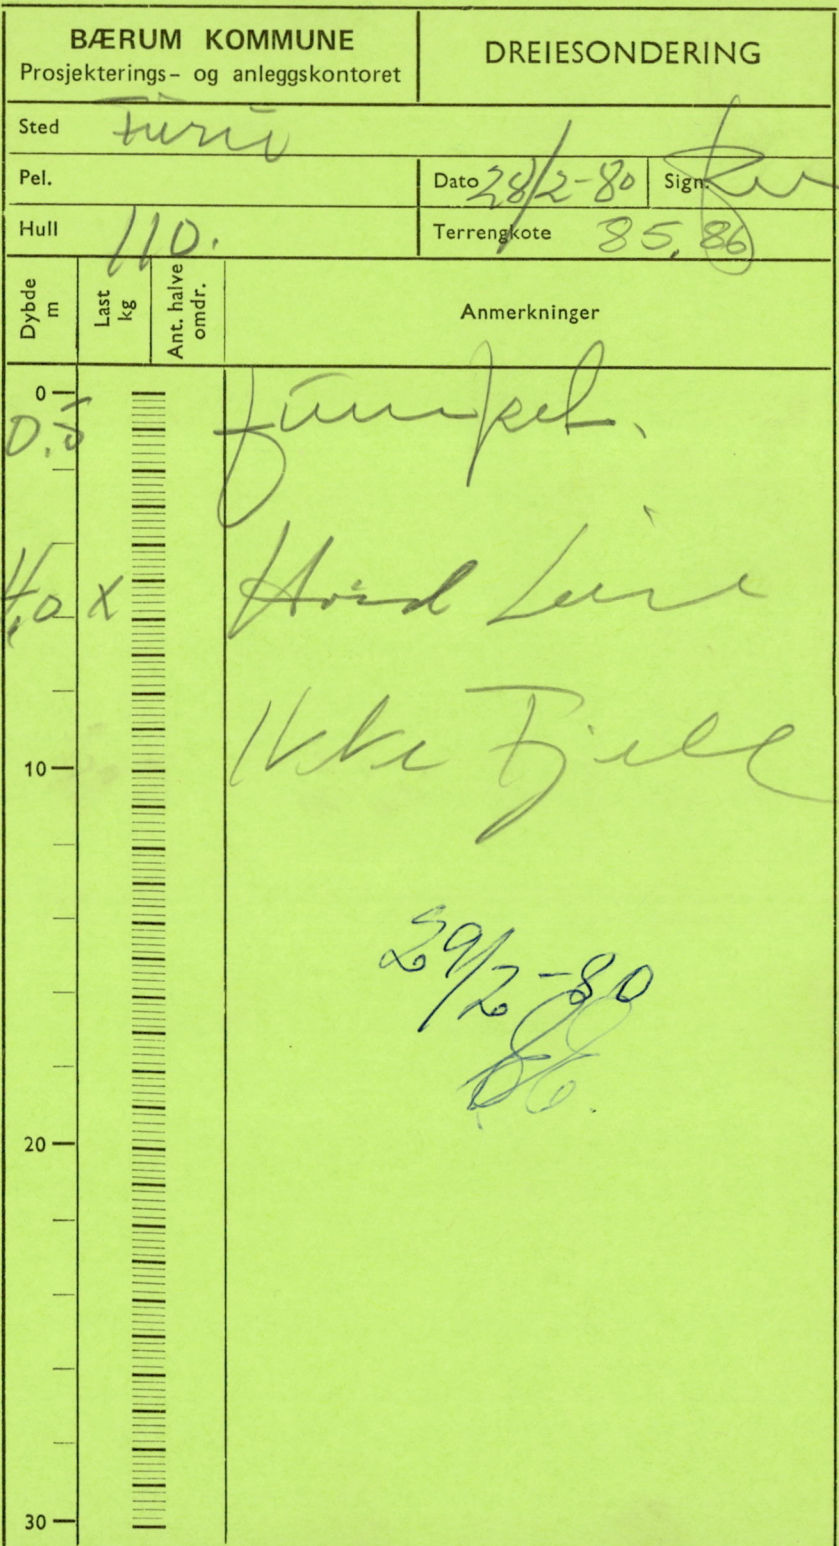 BÆRUM KOMMUNE
Prosjekterings- og anleggskontoret
DREIESONDERING
Sted
Pel.
Dato 28/2-80
Sign.
Hull 110.
Terrengkote 85,86
Dybde m
Last kg
Ant. halve omdr.
Anmerkninger
0
0.5
4,0 X Hård Leire
Ikke Fjell
10
29/2-80
20
30